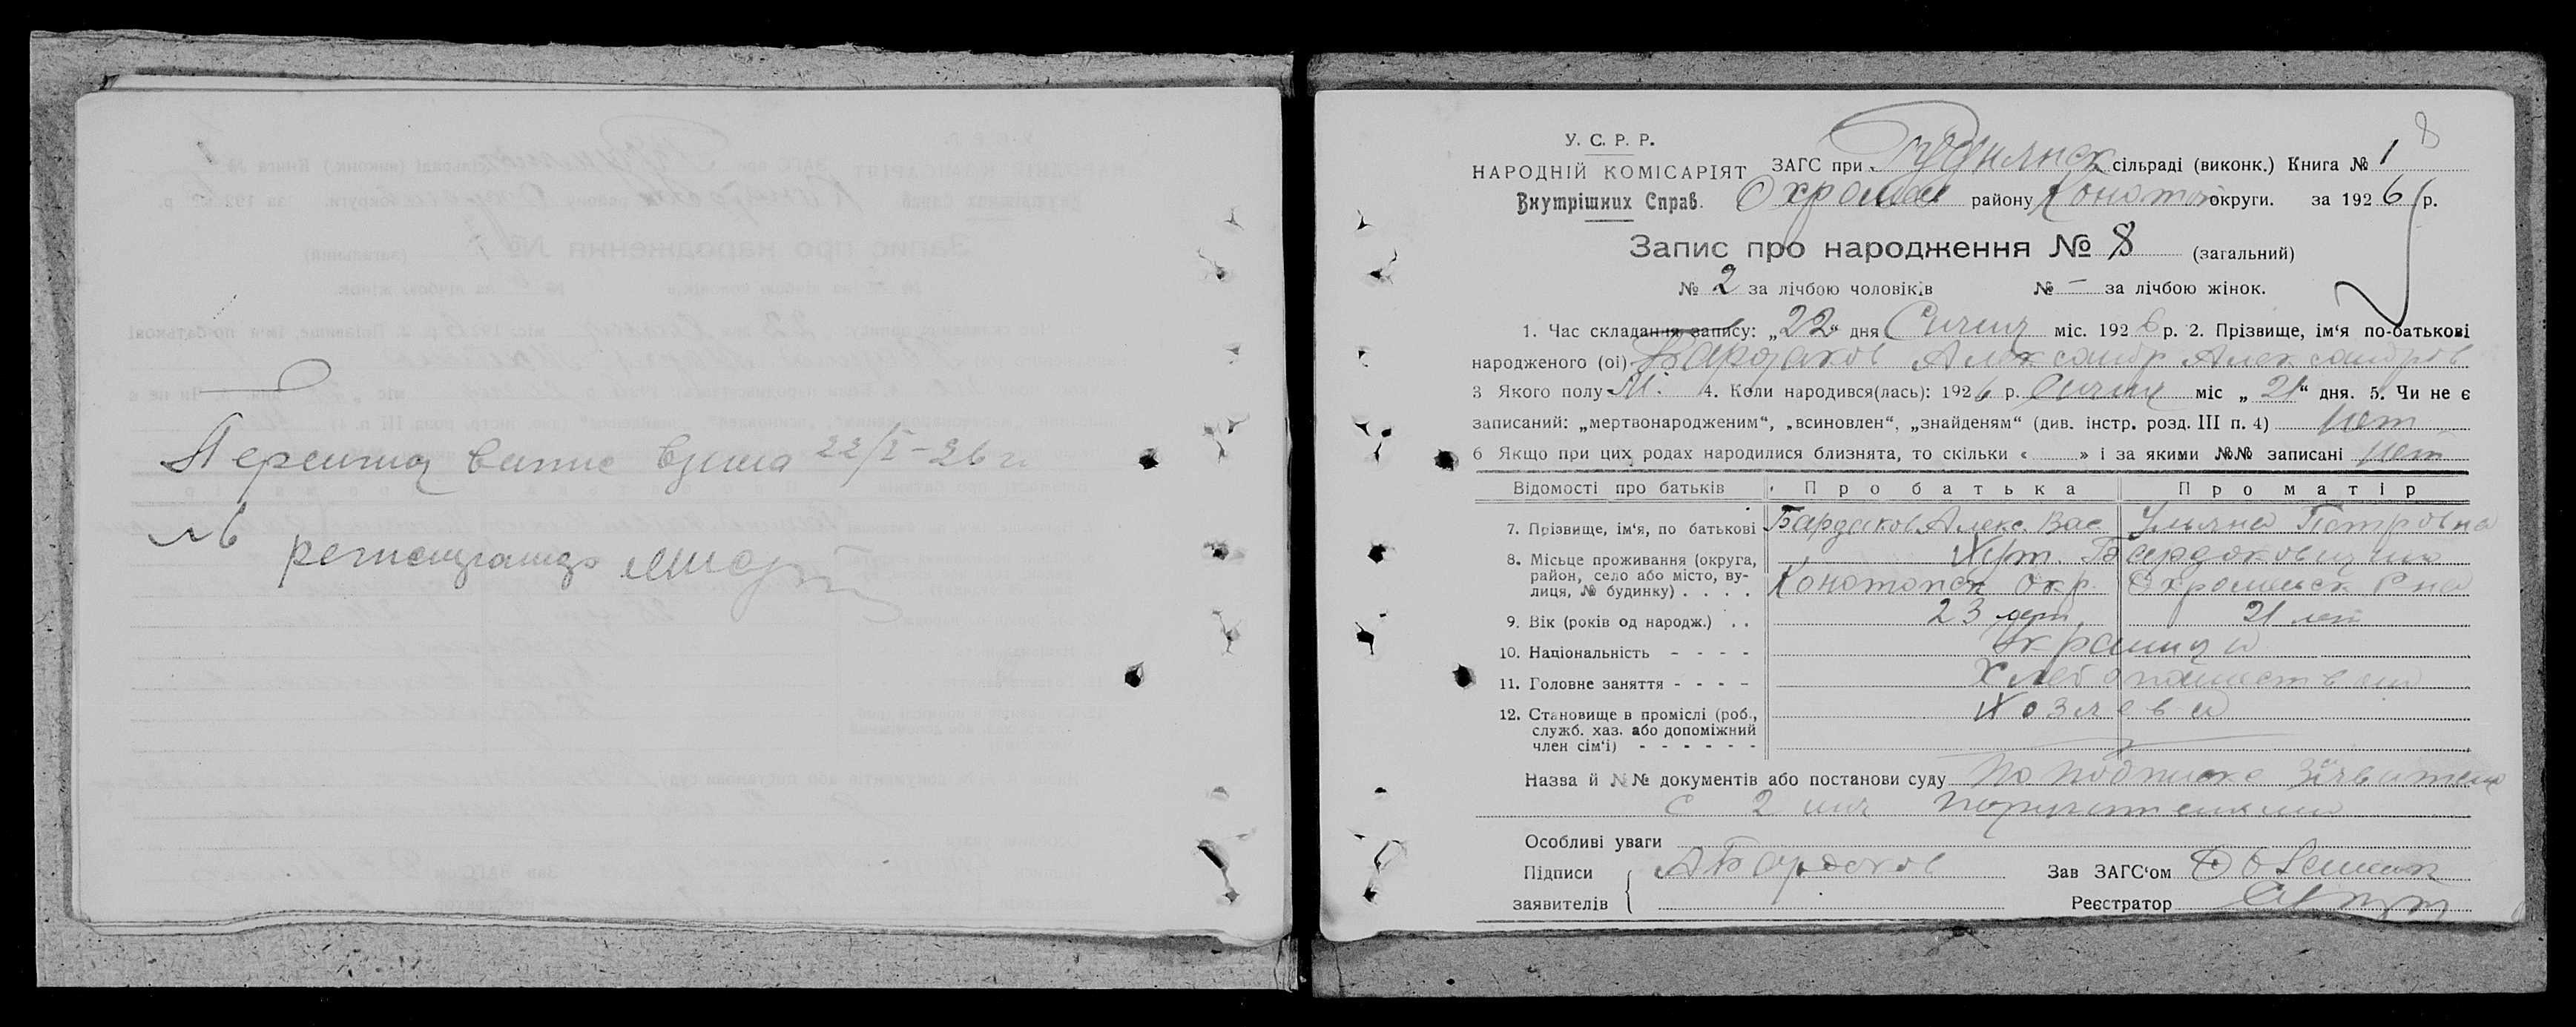 Перший витис взяла 22/I-26 г.
№ 6
У. С. Р. Р.
НАРОДНІЙ КОМІСАРІЯТ
Внутрішних Справ.
8
ЗАГС при сільраді (виконк.) Книга № 1
району Конотоп округи. за 1926 р.
Запис про народження № 8 (загальний)
№ 2 за лічбою чоловіків № – за лічбою жінок.
1. Час складання запису: „22" дня Січня міс. 1926 р. 2. Прізвище, ім'я по-батькові
народженого (ої) Бардаков Александр Александров
3 Якого полу М. 4. Коли народився(лась): 1926 р. Січня міс „21" дня. 5. Чи не є
записаний: „мертвонародженим", „всиновлен", „знайденям" (див. інстр. розд. III п. 4) нет
6 Якщо при цих родах народилися близнята, то скільки « » і за якими №№ записані нет
Відомості про батьків Про батька Про матір
7. Прізвище, ім'я, по батькові Бардаков Алекс. Вас Ульяна Петровна
8. Місьце проживання (округа, район, село або місто, вулиця, № будинку) . . . . Хут.
Конотопск окр. Р на
9. Вік (років од народж.) . . 23 лет 21 лет
10. Національність - - - - Украинцы
11. Головне заняття - - - - Хлебопашество
12. Становище в проміслі (роб., служб. хаз. або допоміжний член сім'і) - - - - - - Хозяева
Назва й №№ документів або постанови суду По подписке
с 2 мя
Особливі уваги
Підписи заявителів А Бардаков
Зав ЗАГС'ом
Реєстратор